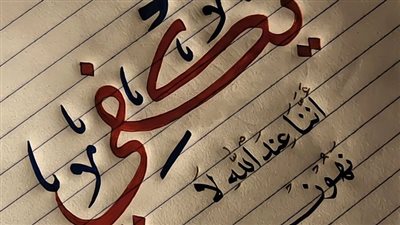 يكفي
أننا عند الله لا
نهون